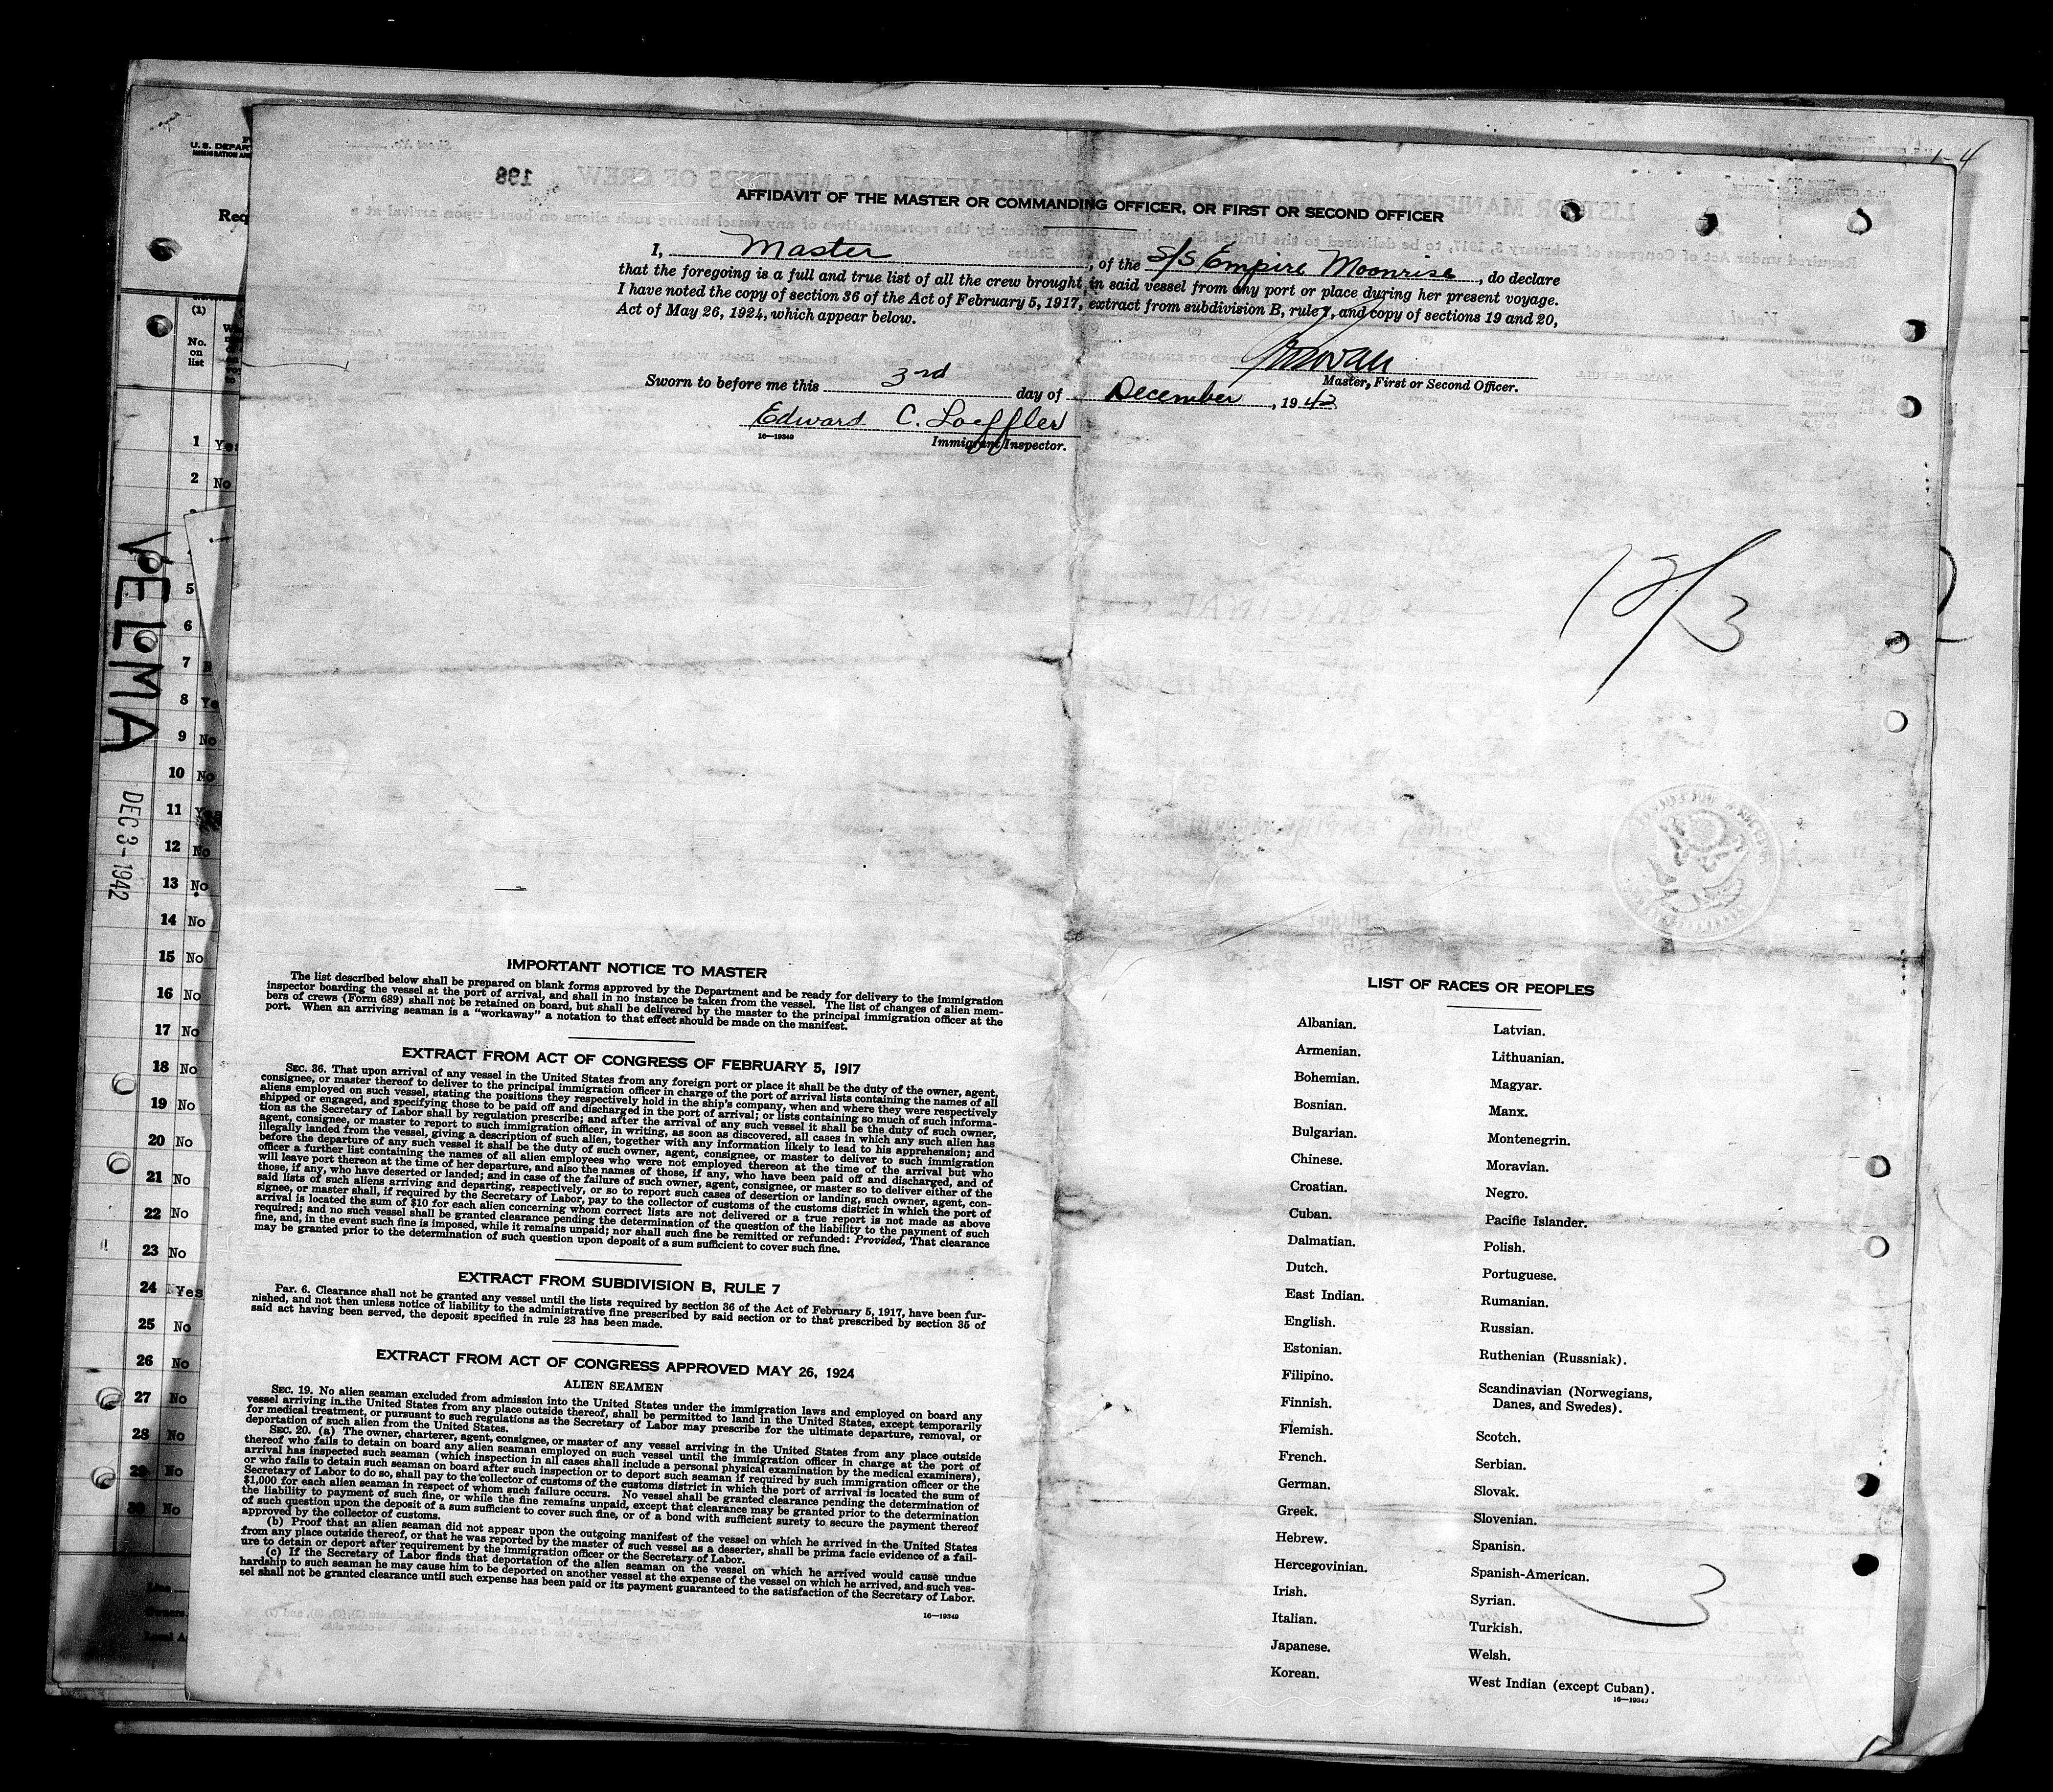 1-4
U. S. DEPAR
IMMIGRATION AN
198
Req
AFFIDAVIT OF THE MASTER OR COMMANDING OFFICER, OR FIRST OR SECOND OFFICER
I, Master, of the S/S Empire Moonrise, do declare
that the foregoing is a full and true list of all the crew brought in said vessel from any port or place during her present voyage.
I have noted the copy of section 36 of the Act of February 5, 1917, extract from subdivision B, rule 7, and copy of sections 19 and 20,
Act of May 26, 1924, which appear below.
Master, First or Second Officer.
Sworn to before me this 3rd day of December, 1942
Edward C. Loeffler
16—19349
Immigrant Inspector.
12/3
(1)
No.
on
list
1 Yes
2 No
5
6
7
8 Ye
9 No
10 No
11 Yes
12 No
13 No
14 No
15 No
16 No
17 No
18 No
19 No
20 No
21 No
22 No
23 No
24 Yes
25 No
26 No
27 No
28 No
29 No
30 No
VELMA
DEC 3-1942
IMPORTANT NOTICE TO MASTER
The list described below shall be prepared on blank forms approved by the Department and be ready for delivery to the immigration
inspector boarding the vessel at the port of arrival, and shall in no instance be taken from the vessel. The list of changes of alien mem-
bers of crews (Form 689) shall not be retained on board, but shall be delivered by the master to the principal immigration officer at the
port. When an arriving seaman is a "workaway" a notation to that effect should be made on the manifest.
EXTRACT FROM ACT OF CONGRESS OF FEBRUARY 5, 1917
SEC. 36. That upon arrival of any vessel in the United States from any foreign port or place it shall be the duty of the owner, agent,
consignee, or master thereof to deliver to the principal immigration officer in charge of the port of arrival lists containing the names of all
aliens employed on such vessel, stating the positions they respectively hold in the ship's company, when and where they were respectively
shipped or engaged, and specifying those to be paid off and discharged in the port of arrival; or lists containing so much of such informa-
tion as the Secretary of Labor shall by regulation prescribe; and after the arrival of any such vessel it shall be the duty of such owner,
agent, consignee, or master to report to such immigration officer, in writing, as soon as discovered, all cases in which any such alien has
illegally landed from the vessel, giving a description of such alien, together with any information likely to lead to his apprehension; and
before the departure of any such vessel it shall be the duty of such owner, agent, consignee, or master to deliver to such immigration
officer a further list containing the names of all alien employees who were not employed thereon at the time of the arrival but who
will leave port thereon at the time of her departure, and also the names of those, if any, who have been paid off and discharged, and of
those, if any, who have deserted or landed; and in case of the failure of such owner, agent, consignee, or master so to deliver either of the
said lists of such aliens arriving and departing, respectively, or so to report such cases of desertion or landing, such owner, agent, con-
signee, or master shall, if required by the Secretary of Labor, pay to the collector of customs of the customs district in which the port of
arrival is located the sum of $10 for each alien concerning whom correct lists are not delivered or a true report is not made as above
required; and no such vessel shall be granted clearance pending the determination of the question of the liability to the payment of such
fine, and, in the event such fine is imposed, while it remains unpaid; nor shall such fine be remitted or refunded: Provided, That clearance
may be granted prior to the determination of such question upon deposit of a sum sufficient to cover such fine.
EXTRACT FROM SUBDIVISION B, RULE 7
Par. 6. Clearance shall not be granted any vessel until the lists required by section 36 of the Act of February 5, 1917, have been fur-
nished, and not then unless notice of liability to the administrative fine prescribed by said section or to that prescribed by section 35 of
said act having been served, the deposit specified in rule 23 has been made.
EXTRACT FROM ACT OF CONGRESS APPROVED MAY 26, 1924
ALIEN SEAMEN
SEC. 19. No alien seaman excluded from admission into the United States under the immigration laws and employed on board any
vessel arriving in the United States from any place outside thereof, shall be permitted to land in the United States, except temporarily
for medical treatment, or pursuant to such regulations as the Secretary of Labor may prescribe for the ultimate departure, removal, or
deportation of such alien from the United States.
SEC. 20. (a) The owner, charterer, agent, consignee, or master of any vessel arriving in the United States from any place outside
thereof who fails to detain on board any alien seaman employed on such vessel until the immigration officer in charge at the port of
arrival has inspected such seaman (which inspection in all cases shall include a personal physical examination by the medical examiners),
or who fails to detain such seaman on board after such inspection or to deport such seaman if required by such immigration officer or the
Secretary of Labor to do so, shall pay to the collector of customs of the customs district in which the port of arrival is located the sum of
$1,000 for each alien seaman in respect of whom such failure occurs. No vessel shall be granted clearance pending the determination of
the liability to payment of such fine, or while the fine remains unpaid, except that clearance may be granted prior to the determination
of such question upon the deposit of a sum sufficient to cover such fine, or of a bond with sufficient surety to secure the payment thereof
approved by the collector of customs.
(b) Proof that an alien seaman did not appear upon the outgoing manifest of the vessel on which he arrived in the United States
from any place outside thereof, or that he was reported by the master of such vessel as a deserter, shall be prima facie evidence of a fail-
ure to detain or deport after requirement by the immigration officer or the Secretary of Labor.
(c) If the Secretary of Labor finds that deportation of the alien seaman on the vessel on which he arrived would cause undue
hardship to such seaman he may cause him to be deported on another vessel at the expense of the vessel on which he arrived, and such ves-
sel shall not be granted clearance until such expense has been paid or its payment guaranteed to the satisfaction of the Secretary of Labor.
16—19349
LIST OF RACES OR PEOPLES
Albanian.
Armenian.
Bohemian.
Bosnian.
Bulgarian.
Chinese.
Croatian.
Cuban.
Dalmatian.
Dutch.
East Indian.
English.
Estonian.
Filipino.
Finnish.
Flemish.
French.
German.
Greek.
Hebrew.
Hercegovinian.
Irish.
Italian.
Japanese.
Korean.
Latvian.
Lithuanian.
Magyar.
Manx.
Montenegrin.
Moravian.
Negro.
Pacific Islander.
Polish.
Portuguese.
Rumanian.
Russian.
Ruthenian (Russniak).
Scandinavian (Norwegians,
Danes, and Swedes).
Scotch.
Serbian.
Slovak.
Slovenian.
Spanish.
Spanish-American.
Syrian.
Turkish.
Welsh.
West Indian (except Cuban).
16—19349
3